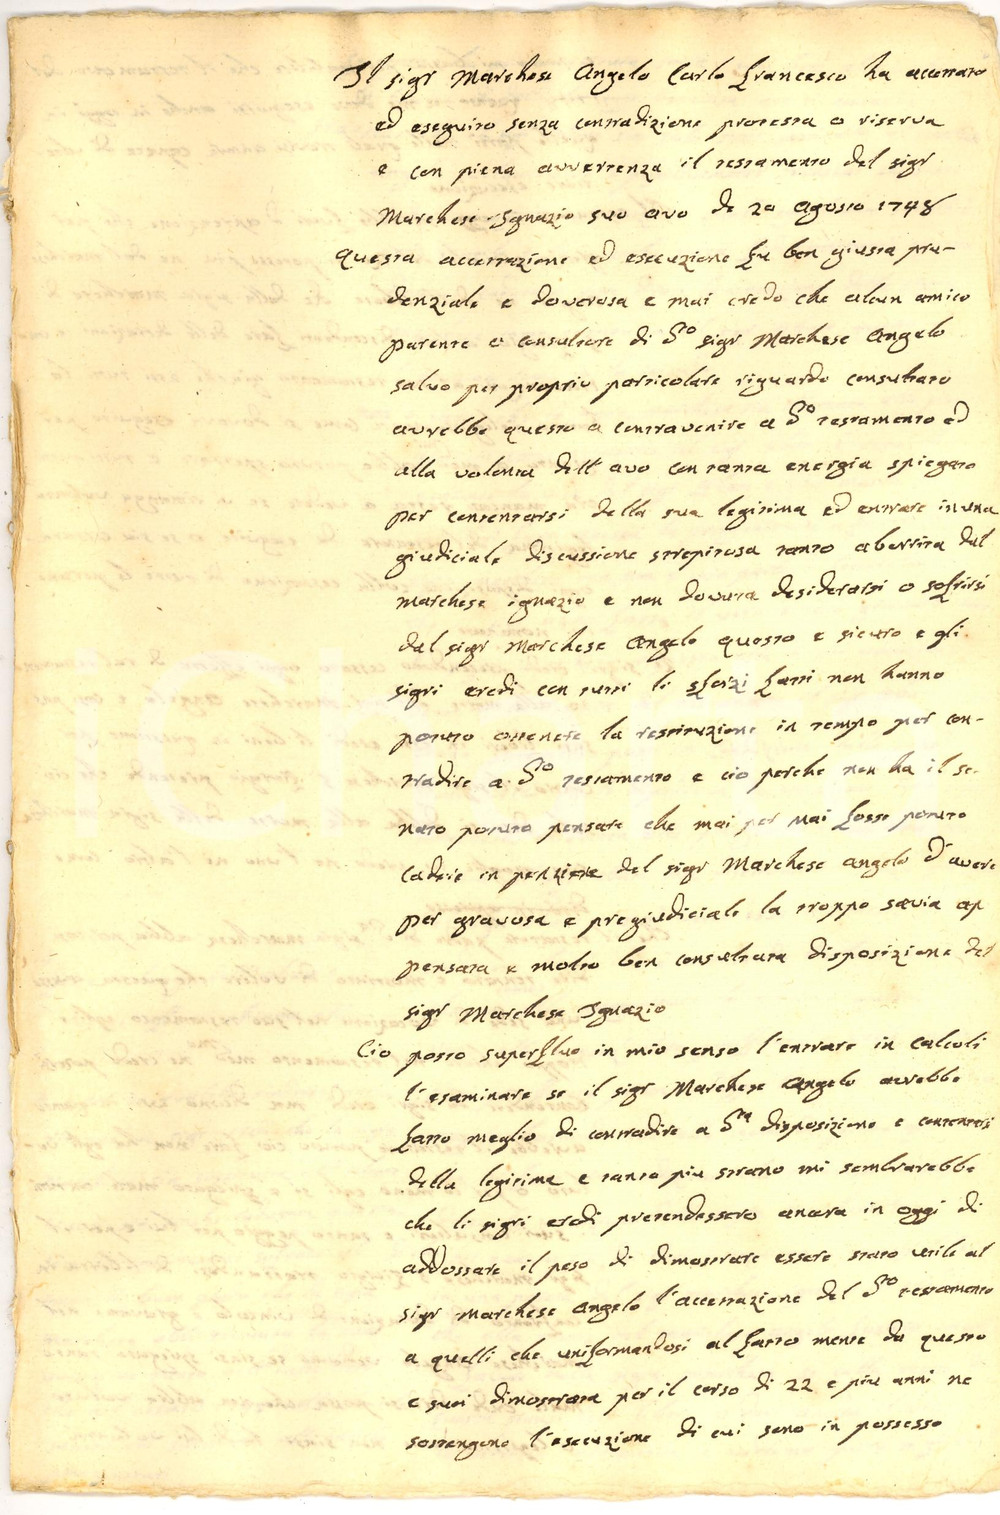 Il sigr Marchese Angelo Carlo Francesco ha accettato
ed eseguito senza contradizione protesta o riserva
e con piena avvertenza il testamento del sigr
Marchese Ignazio suo avo de 20 agosto 1748
questa accettazione ed esecuzione fu ben giusta pru-
denziale e doverosa e mai credo che alcun amico
parente o consultore di do sigr Marchese Angelo
salvo per proprio particolare riguardo consultato
avrebbe questo a contravenire a do testamento ed
alla volonta dell avo con tanta energia spiegata
per contentarsi della sua legitima ed entrare in una
giudiciale discussione strepitosa tanto aborrita dal
marchese ignazio e non dovuta desiderarsi o soffrirsi
dal sigr Marchese Angelo questo e sicuro e gli
sigri eredi con tutti li sforzi fatti non hanno
potuto ottenere la restituzione in tempo per con-
tradire a do testamento e cio perche non ha il se-
nato potuto pensare che mai per mai fosse potuto
cadere in penziere del sigr Marchese angelo d'avere
per gravosa e pregiudiciale la troppo savia ap
pensata e molto ben consultata disposizione del
sigr Marchese Ignazio
Cio posto superfluo in mio senso l'entrare in calcoli
l'esaminare se il sigr Marchese Angelo avrebbe
fatto meglio di contradire a da disposizione e contentarsi
della legitima e tanto piu strano mi sembrarebbe
che li sigri eredi pretendessero ancora in oggi di
addossare il peso di dimostrare essere stato utile al
sigr marchese angelo l'accettazione del do testamento
a quelli che uniformandosi al fatto mente da questo
e suoi dimostrata per il corso di 22 e piu anni ne
sostengono l'esecuzione di cui sono in possesso